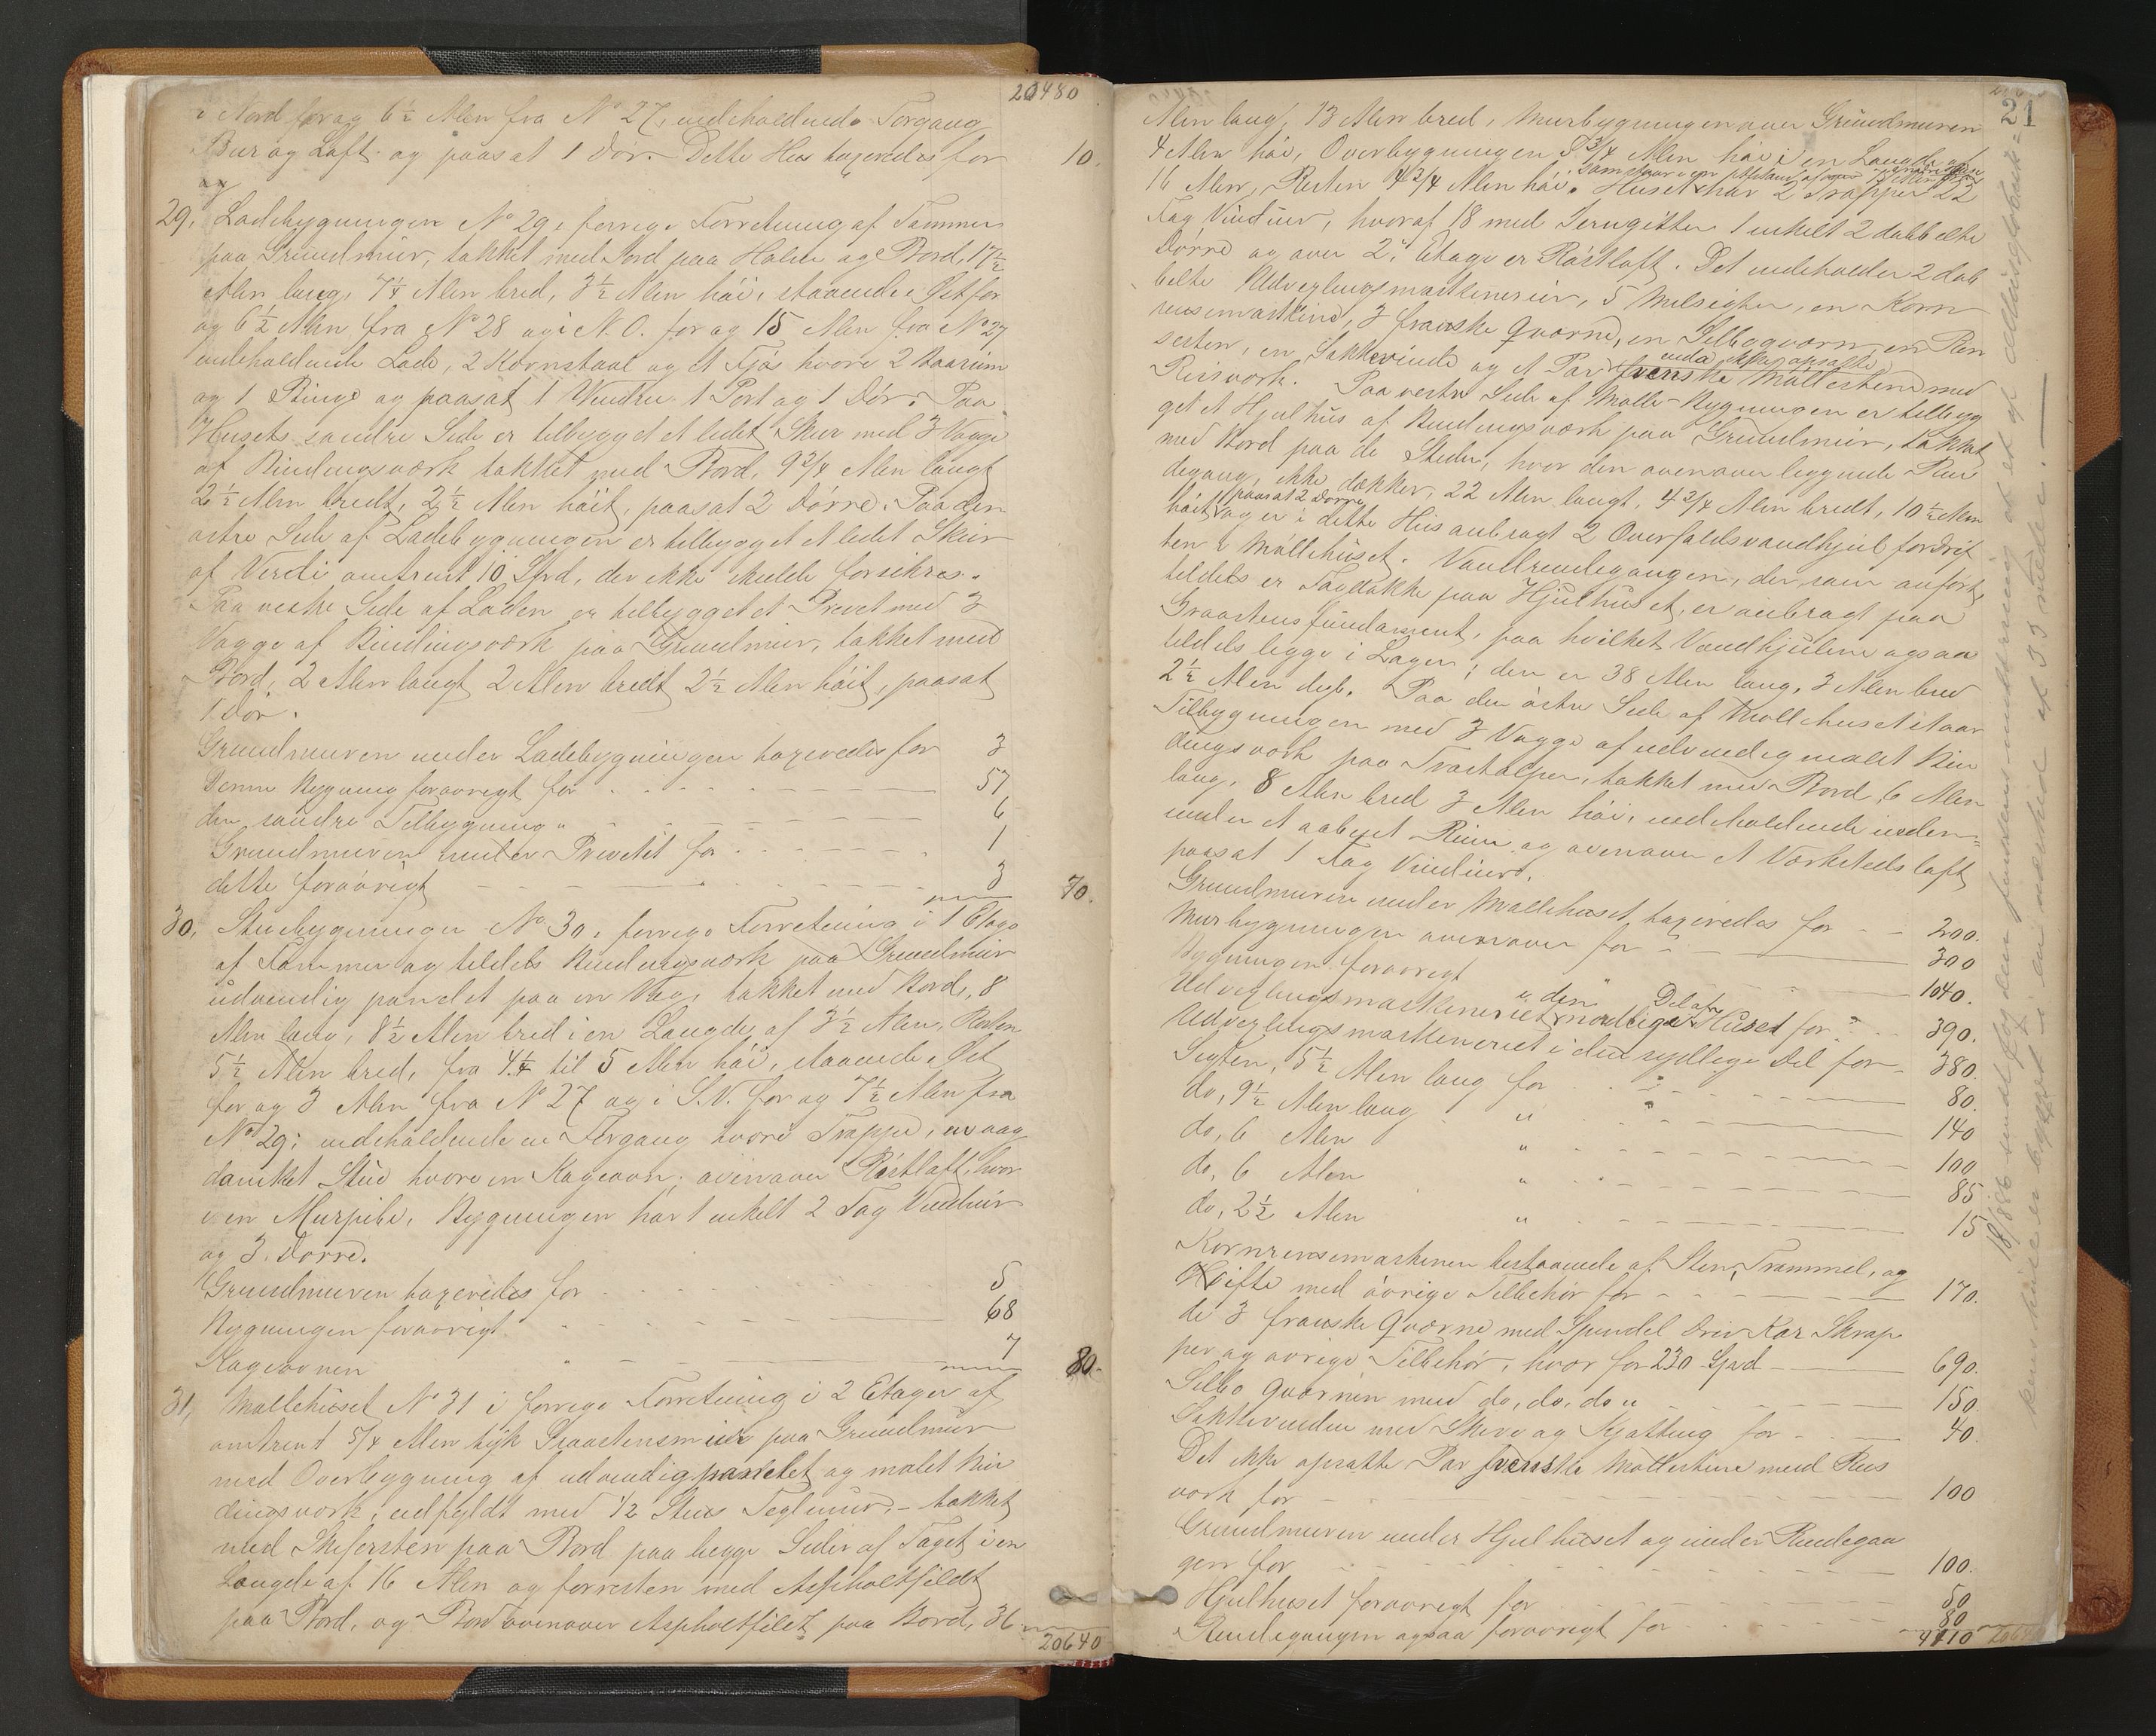 20480
i Nord for og 6½ Alen fra No 27, indeholdende Forgang
Bur og Loft og paasat 1 Dør. Dette Hus taxeredes for 10.
og
29, Ladebygningen No 29 i forrige Forretning af Tømmer
paa Grundmur, takket med Jord paa Halm og Bord, 17½
Alen lang, 7¼ Alen bred, 3½ Alen höi, staaende i Öst for
og 6½ Alen fra No 28 og i N.O. for og 15 Alen fra No 27
indeholdende Lade, 2 Kornstaal og et Fjös hvori 2 Baasrum
og 1 Binge og paasat 1 Vindu 1 Port og 1 Dör. Paa
Husets söndre Side er tilbygget et lidet Skur med 3 Vægge
af Bindingsværk takket med Bord, 9¾ Alen langt
2½ Alen bredt, 2½ Alen höit, paasat 2 Dörre. Paa den
östre Side af Ladebygningen er tilbygget et lidet Skur
af Verdi omtrent 10 Spd, der ikke skulde forsikres.
Paa vestre Side af Laden er tilbygget et Privet med 3
Vægge af Bindingsværk paa Grundmur, takket med
Bord, 2 Alen langt 2 Alen bredt 2½ Alen höit, paasat
1 Dör.
Grundmuren under Ladebygningen taxeredes for 3
Denne Bygning forövrigt for 57
den söndre Tilbygning " 6
Grundmuren under Privetet for 1
dette forövrigt 3 70.
30, Stuebygningen No 30 i forrige Forretning i 1 Etage
af Tømmer og tildels Bindingsværk paa Grundmur
udvendig panelet paa en Væg, takket med Bord, 8
Alen lang, 8½ Alen bred i en Længde af 3½ Alen, Resten
5½ Alen bred, fra 4¼ til 5 Alen höi, staaende i Öst
for og 3 Alen fra No 27 og i S.V. for og 7½ Alen fra
No 29; indeholdende en Forgang hvori Trappe, en
Stue hvori en Kageovn; ovenover Röstloft, hvor
i en Murpibe. Bygningen har 1 enkelt 2 Fag Vinduer
og 3 Dörre.
Grundmuren taxeredes for 5
Bygningen forövrigt 68
Kageovnen " 7 80.
31, Möllehuset No 31 i forrige Forretning i 2 Etager af
omtrent 5/4 Alen tyk Graastensmur paa Grundmur
med Overbygning af udvendig panelet og malet Bin
dingsværk, udfyldt med ½ Stens Teglmur, takket
med Skifersten paa Bord paa begge Sider af Taget i en
Længde af 16 Alen og forresten med Asphaltfildt
paa Bord, og Bord ovenover Asphaltfildt paa Bord, 36
20640
21
Alen lang, 13 Alen bred, Murbygningen over Grundmuren
4 Alen höi, Overbygningen 8¾ Alen höi i en Længde af
16 Alen, Resten 4¾ Alen höi. Huset har 2 Trapper 22
Fag Vinduer, hvoraf 18 med Jerngitter 1 enkelt 2 dobbelte
Dörre og over 2. Etage er Röstloft. Det indeholder 2 dob
belte Udvexlingsmaskinerier, 5 Melsigter, en Korn
rensemaskine, 3 franske Qværne, en Sillboqværn, en Ren
sesten, en Sækkevinde og et Par
endu ikke opsatte
franske Möllestene med
Reisværk. Paa vestre Side af Mölle-Bygningen er tilbyg
get et Hjulhus af Bindingsværk paa Grundmur, takket
med Bord paa de Steder, hvor den ovenover liggende Ren
degang ikke dækker, 22 Alen langt, 4¾ Alen bredt, 10½ Alen
paasat 2 Dörre
höit og er i dette Hus anbragt 2 Overfaldsvandhjul for Drif
ten i Möllehuset. Vandrendegangen, der som anfört
tildels er Tagdække paa Hjulhuset, er anbragt paa
Graastensfundament, paa hvilket Vandhjulene ogsaa
tildels ligge i Lager; den er 38 Alen lang, 3 Alen bred
2½ Alen dyb. Paa den östre Side af Möllehuset staar
Tilbygningen med 3 Vægge af udvendig malet Bin
dingsværk paa Træstolper, takket med Bord, 6 Alen
lang, 8 Alen bred 3 Alen höi, indeholdende neden-
under et aabent Rum og ovenover et Værkstedsloft
paasat 1 Fag Vinduer.
Grundmuren under Möllehuset taxeredes for 200.
Murbygningen ovenover for 300
Bygningen forövrigt 1040.
Udvexlingsmaskineriet i den nordlige Del af Huset for 390.
Udvexlingsmaskineriet i den sydlige Del for 380.
Sigten, 5½ Alen lang for 80.
do, 9½ Alen lang " 140
do, 6 Alen " 100
do, 6 Alen " 85
do, 2½ Alen " 15
Kornrensemaskinen bestaaende af Sten, Trommel, og
Vifte med övrige Tilbehör for 170.
de 3 franske Qværne med Spindel Driv Kar Skrap
per og övrige Tilbehör, hver for 230 Spd 690.
Sillbo Qværnen med do, do, do " 150.
Sækkevinden med Skive og Kjætting for 40.
Det ikke opsatte Par franske Möllestene med Reis
værk for 100
Grundmuren under Hjulhuset og under Rendegan
gen for 100.
Hjulhuset forövrigt for 50
Rendegangen ogsaa forövrigt for 80
4110